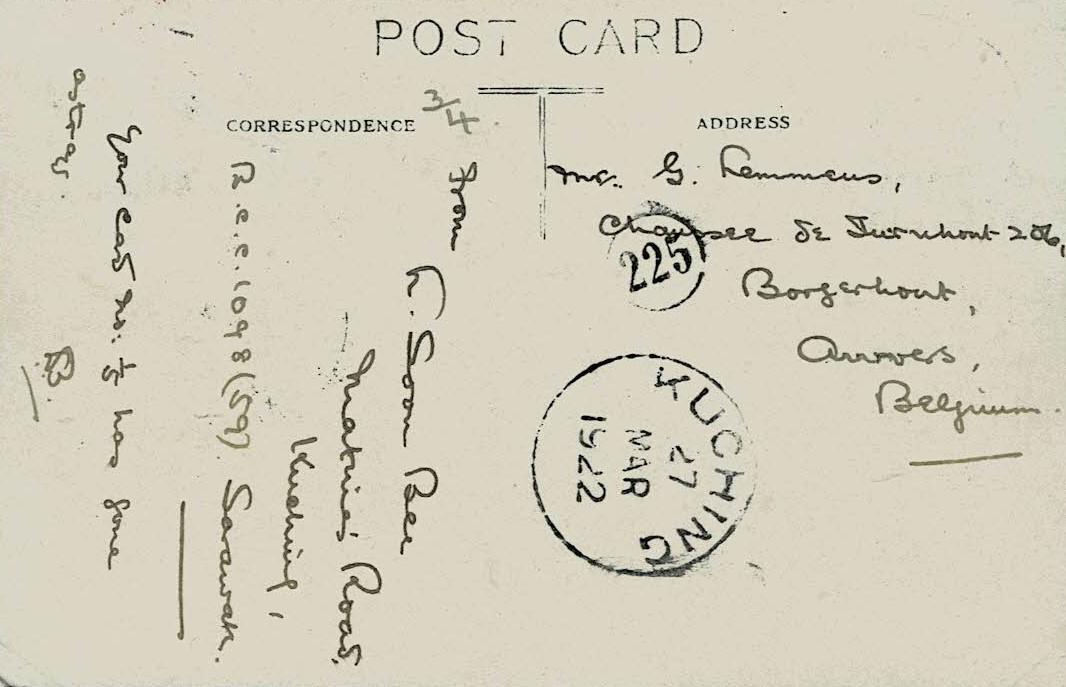 POST CARD
CORRESPONDENCE
ADDRESS
3/4
From K. Soon Bee
Road,
Kuching,
R.C.C. 1098 (59) Sarawak.
Your card No. has gone
astray.
Mr. G. Lemmens,
Chaussee de Turnhout 206,
Borgerhout,
Anvers,
Belgium.
225
KUCHING
27
MAR
1922